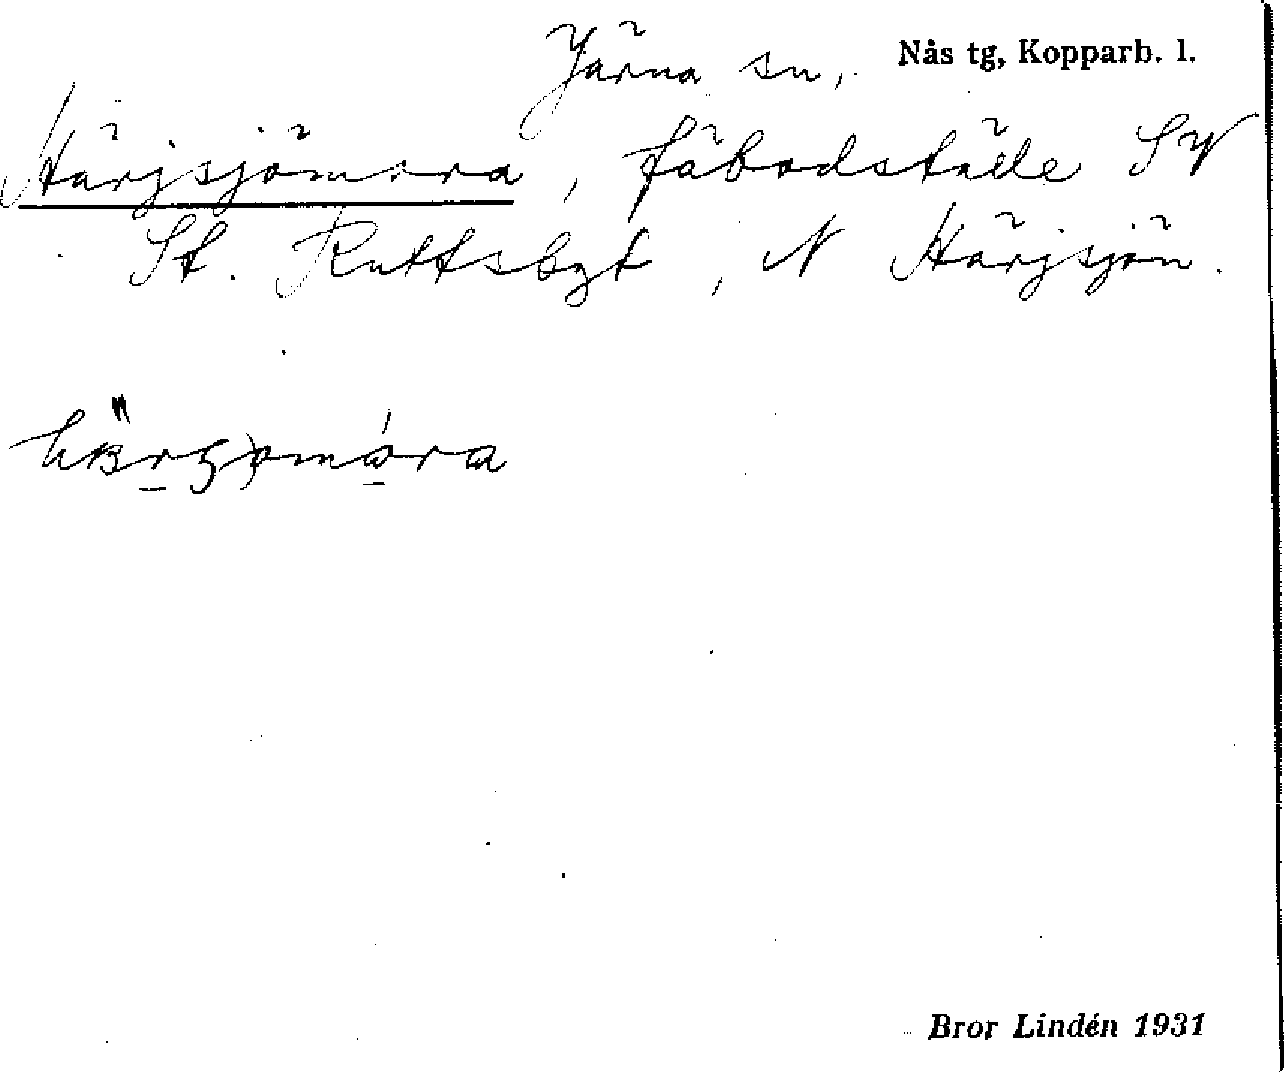 Järna sn, Nås tg, Kopparb. l.
Härjsjömora, fäbodställe SV
St. Ruttsbyt, N Härjsjön.
Bror Lindén 1931